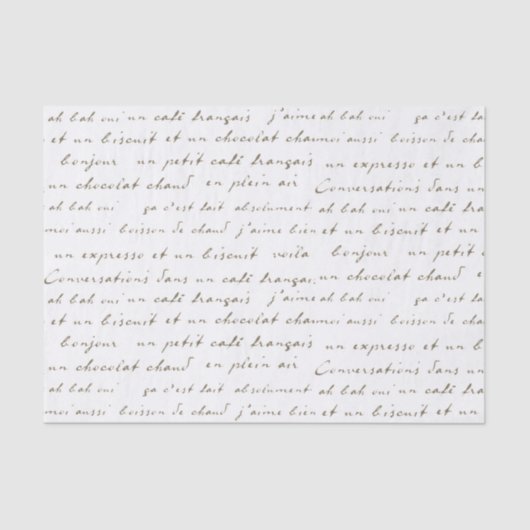 ah bah oui un café français j'aime ah bah oui ça c'est fai
et un biscuit et un chocolat cha moi aussi boisson de cha
bonjour un petit café français un expresso et un b
un chocolat chaud en plein air Conversations dans un
ah bah oui ça c'est fait absolument ah bah oui un café fra
moi aussi boisson de chaud j'aime bien et un biscuit et un
un expresso et un biscuit voila bonjour un petit c
Conversations dans un café françai un chocolat chaud e
ah bah oui un café français j'aime ah bah oui ça c'est fai
et un biscuit et un chocolat cha moi aussi boisson de cha
bonjour un petit café français un expresso et un b
un chocolat chaud en plein air Conversations dans un
ah bah oui ça c'est fait absolument ah bah oui un café fra
moi aussi boisson de chaud j'aime bien et un biscuit et un